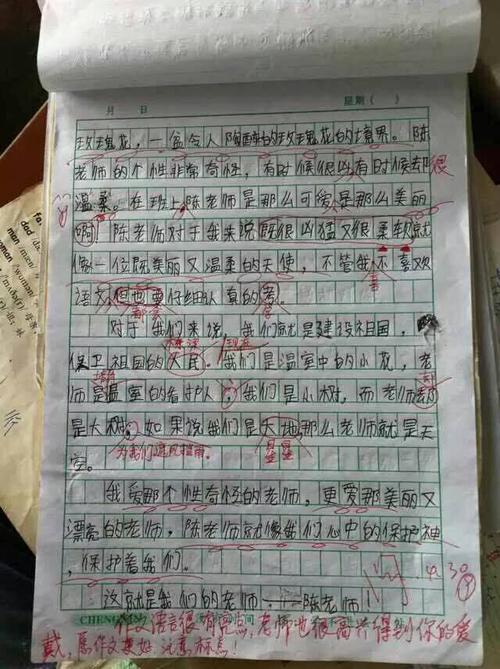 月 日 星期( )
玫瑰花,一盆令人陶醉的玫瑰花的境界。陈
老师的个性非常奇怪,有时候很凶有时候却很
温柔。在班上陈老师是那么可爱是那么美丽
啊!陈老师对于我来说既很凶猛又很柔软就
像一位既美丽又温柔的天使,不管我不喜欢
语文,但也要仔细认真的考。
都要
喜
对于我们来说,我们就是建设祖国,
栋梁 现在
保卫祖国的人民。我们是温室中的小花,老
师是温室的看护人。我们是小树,而老师都
是大树。如果说我们是大地那么老师就是天
为我们遮风挡雨。 星星
空。
我爱那个性奇怪的老师,更爱那美丽又
漂亮的老师,陈老师就像我们心中的保护神
,保护着我们。
这就是我们的老师——陈老师!
4.30
作文语言很有亮点,老师也很高兴得到你的爱
戴,愿作文更好,注意标点!